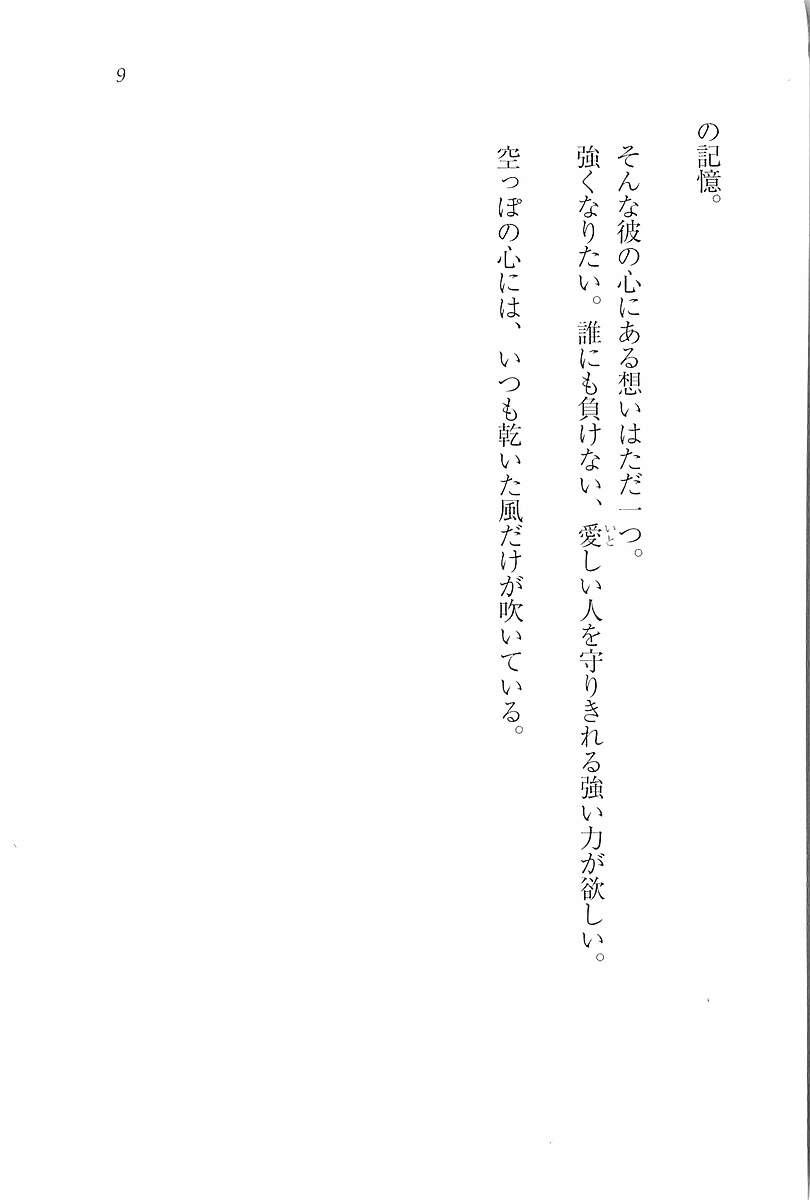 の記憶。
そんな彼の心にある想いはただ一つ。
強くなりたい。誰にも負けない、愛しい人を守りきれる強い力が欲しい。
いと
空っぽの心には、いつも乾いた風だけが吹いている。
9